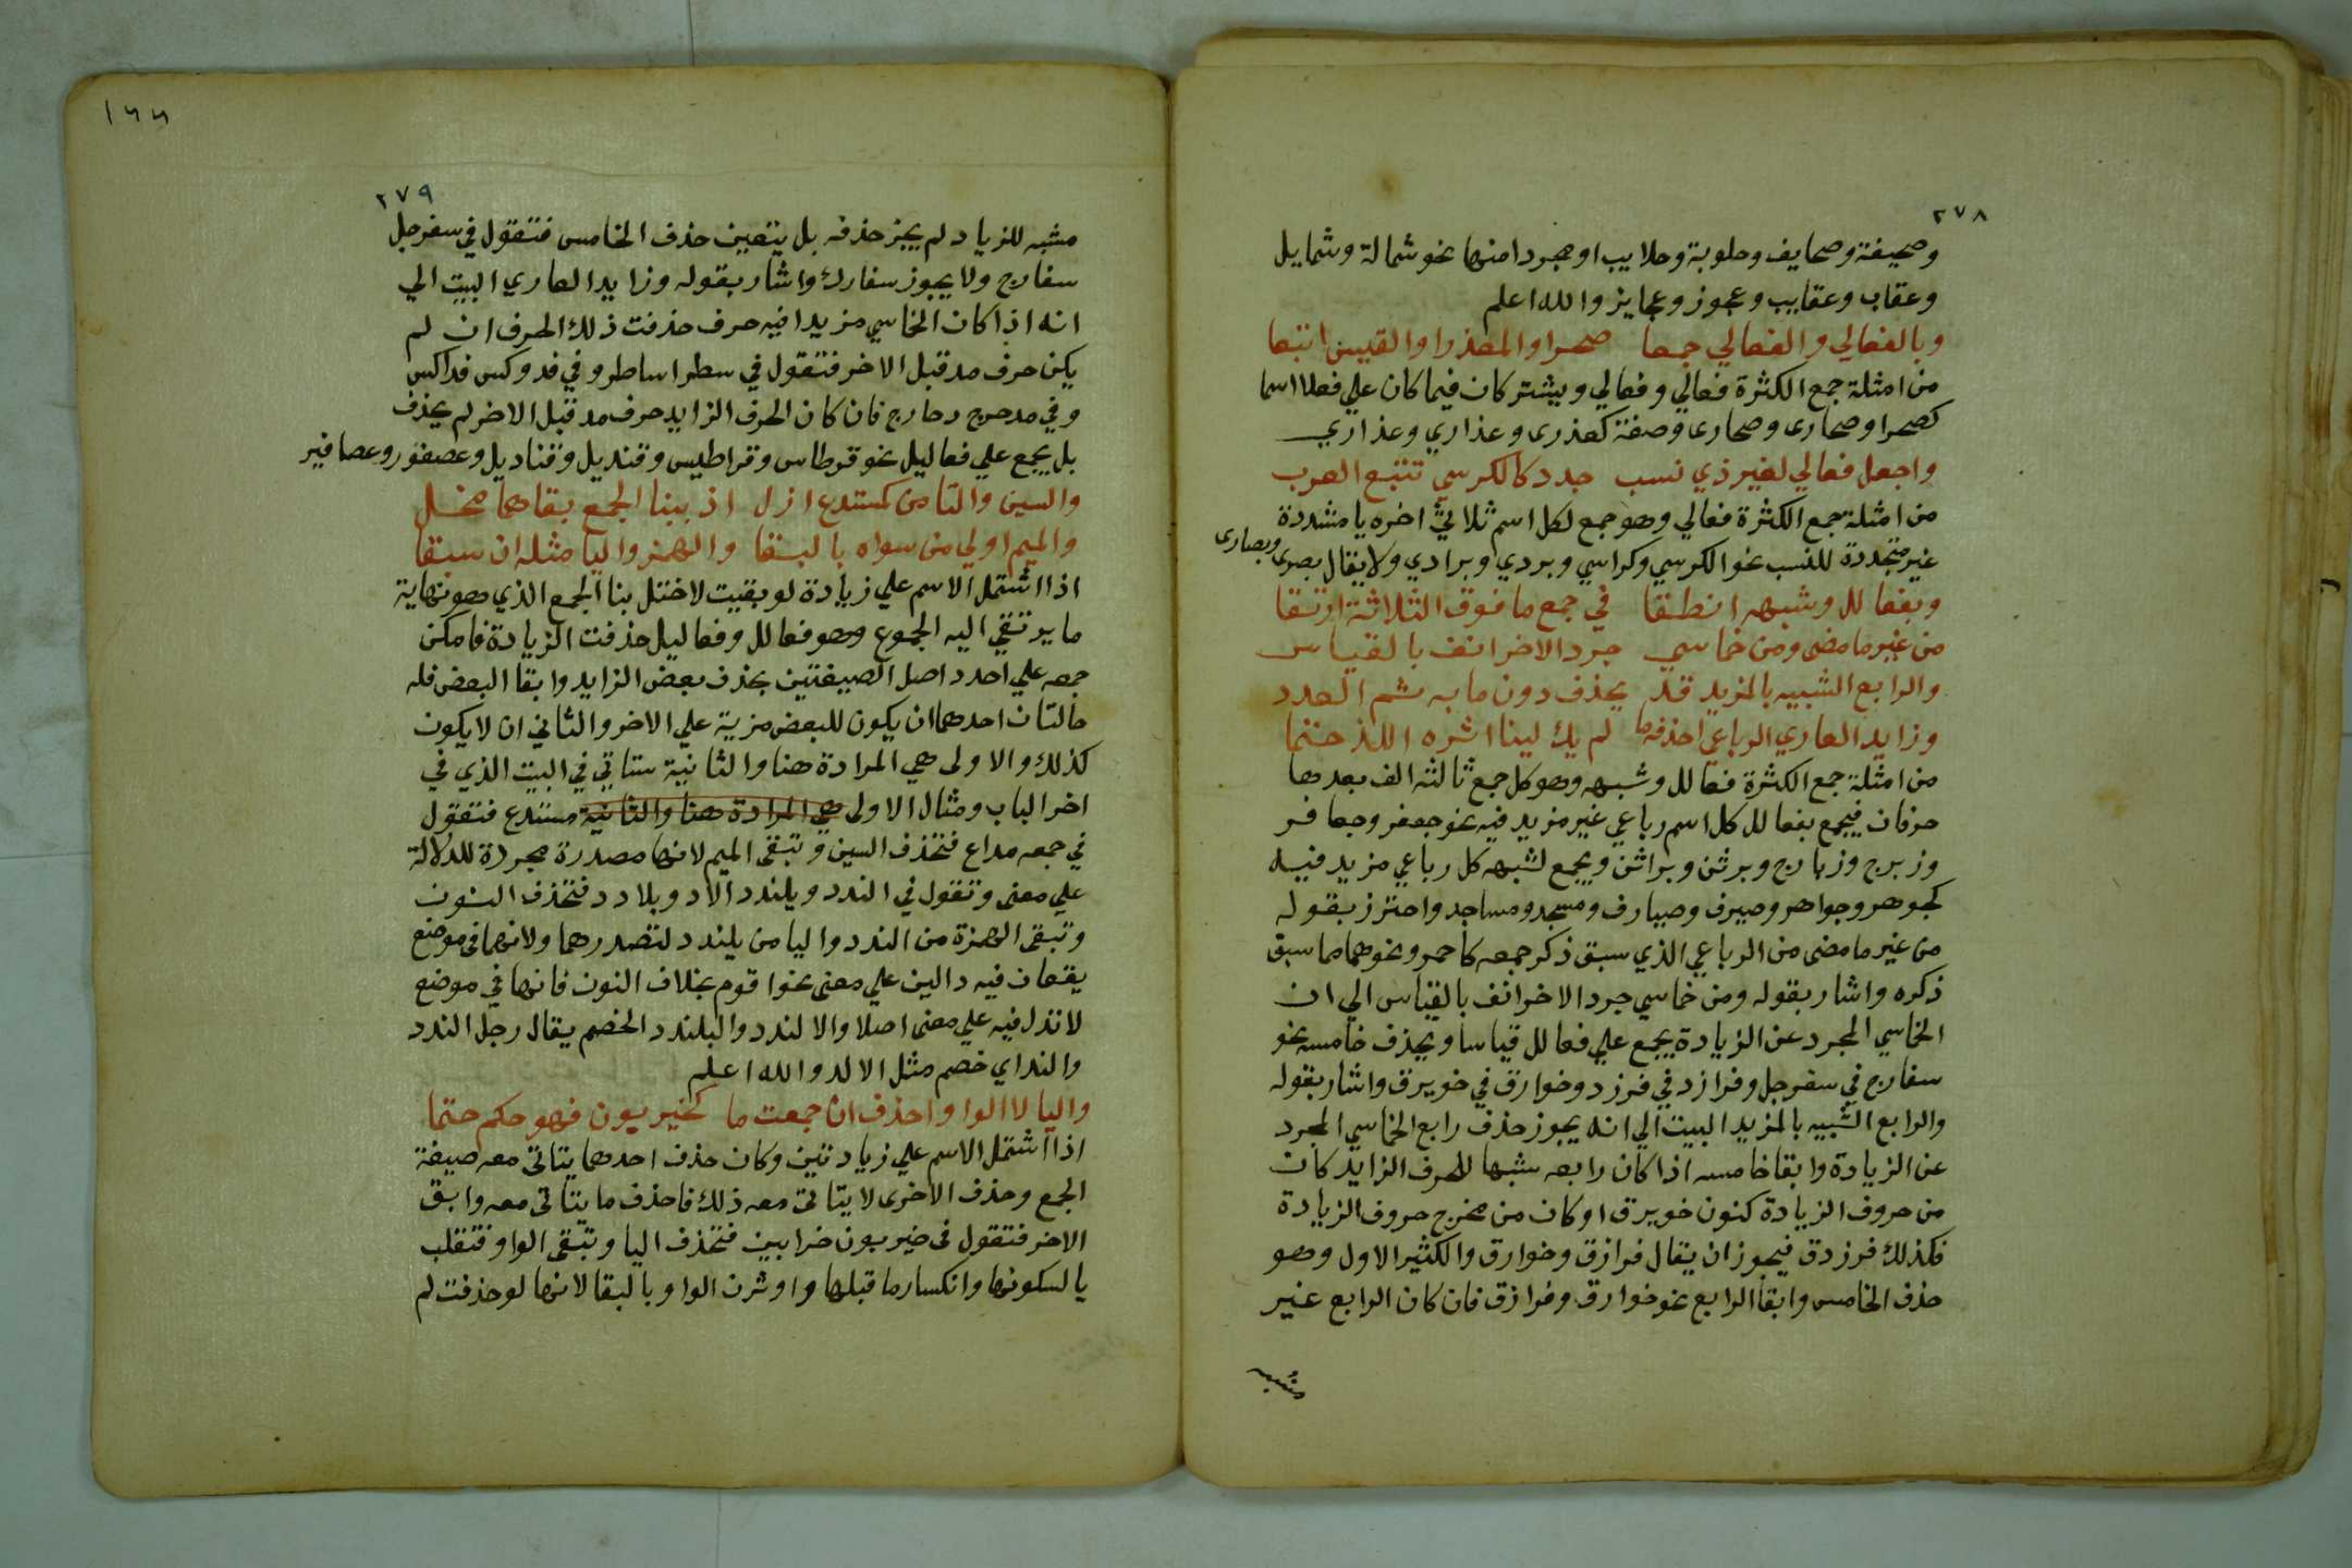 ٢٧٨
وصحيفة وصحايف وحلوبة وحلايب او مجردا منها نحو شمالة وشمايل
وعقاب وعقايب وعجوز وعجايز والله اعلم
وبالفعالي والفعالي جمعا صحرا والعذرا والقيس اتبعا
من امثلة جمع الكثرة فعالي وفعالي ويشتركان فيما كان علي فعلا اسما
كصحرا وصحارى وصحارى وصفة كعذرى وعذاري وعذاري
واجعل فعالي لغير ذي نسب جدد كالكرسي تتبع العرب
من امثلة جمع الكثرة فعالي وهو جمع لكل اسم ثلاثي اخره يا مشددة
غير متجددة للنسب نحو الكرسي وكراسي وبردي وبرادي ولا يقال بصرى وبصارى
وبفعالل وشبهه انطقا في جمع ما فوق الثلاثة ارتقا
من غير ما مضى ومن خماسي جرد الاخر انف بالقياس
والرابع الشبيه بالمزيد قد يحذف دون ما به تم العدد
وزايد العاري الرباعي احذفه ما لم يك لينا اثره اللذ ختما
من امثلة جمع الكثرة فعالل وشبهه وهو كل جمع ثالثه الف بعدها
حرفان فيجمع بفعالل كل اسم رباعي غير مزيد فيه نحو جعفر وجعافر
وزبرج وزبارج وبرثن وبراثن ويجمع لشبهه كل رباعي مزيد فيه
كجوهر وجواهر وصيرف وصيارف ومسجد ومساجد واحترز بقوله
من غير ما مضى من الرباعي الذي سبق ذكر جمعه كاحمر ونحوهما مما سبق
ذكره واشار بقوله ومن خماسي جرد الاخر انف بالقياس الي ان
الخماسي المجرد عن الزيادة يجمع علي فعالل قياسا ويحذف خامسه نحو
سفارج في سفرجل وفرازد في فرزد وخوارق في خويرق واشار بقوله
والرابع الشبيه بالمزيد البيت الي انه يجوز حذف رابع الخماسي المجرد
عن الزيادة وابقا خامسه اذا كان رابعه شبها للحرف الزايد كان
من حروف الزيادة كنون خويرق او كان من مخرج حروف الزيادة
فكذلك فرزدق فيجوز ان يقال فرازق وخوارق والكثير الاول وهو
حذف الخامس وابقا الرابع نحو خوارق وفرازق فان كان الرابع غير
مشبه
١٦٦
٢٧٩
مشبه للزياد لم يجز حذفه بل يتعين حذف الخامس فتقول في سفرجل
سفارج ولا يجوز سفارل واشار بقوله وزايد العاري البيت الي
انه اذا كان الخماسي مزيدا فيه حرف حذفت ذلك الحرف ان لم
يكن حرف مد قبل الاخر فتقول في سطرا ساطر وفي فدوكس فداكس
وفي مدحرج دحارج فان كان الحرف الزايد حرف مد قبل الاخر لم يحذف
بل يجمع علي فعاليل نحو قرطاس وقراطيس وقنديل وقناديل وعصفور وعصافير
والسين والتا من كمستدع ازل اذ ببنا الجمع بقاهما مخل
والميم اولي من سواه بالبقا والهمز واليا مثله ان سبقا
اذا اشتمل الاسم علي زيادة لو بقيت لاختل بنا الجمع الذي هو نهاية
ما يرتقي اليه الجموع وهو فعالل وفعاليل حذفت الزيادة فامكن
جمعه علي احدد اصل الصيغتين بحذف بعض الزايد وابقا البعض فله
حالتان احدهما ان يكون للبعض مزية علي الاخر والثاني ان لا يكون
كذلك والاولى هي المرادة هنا والثانية ستاتي في البيت الذي في
اخر الباب ومثال الاولى هي المرادة هنا والثانية مستدع فتقول
في جمعه مداع فتحذف السين وتبقى الميم لانها مصدرة مجردة للدلالة
علي معنى وتقول في الندد ويلندد الاد ويلادد فتحذف النون
وتبقى الهمزة من الندد واليا من يلندد لتصدرهما ولانهما في موضع
يقعان فيه دالين علي معنى نحو اقوم بخلاف النون فانها في موضع
لا تدل فيه علي معنى اصلا والا لندد والبلندد الخصم يقال رجل الندد
والنداي خصم مثل الالد والله اعلم
واليا لا الوا واحذف ان جمعت ما كخيربون فهو حكم حتما
اذا اشتمل الاسم علي زيادتين وكان حذف احدهما يتاتى معه صيغة
الجمع وحذف الاخرى لا يتاتى معه ذلك فاحذف ما يتاتى معه وابق
الاخر فتقول في خيربون خرابين فتحذف اليا وتبقى الواو فتقلب
يا لسكونها وانكسار ما قبلها واوثرن الواو بالبقا لانها لو حذفت لم